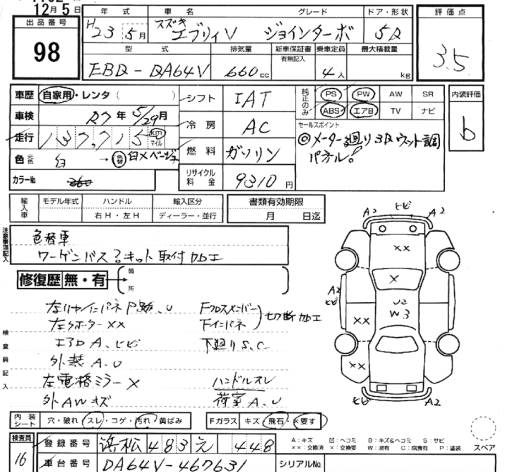 12月5日
出品番号
98
年式
H23年5月
車名
スズキ
エブリィV
グレード
ジョインターボ
ドア・形状
5D
評価点
3.5
型式
EBD-DA64V
排気量
660cc
新車保証書
有無記入
乗車定員
4人
最大積載量
kg
車歴
自家用・レンタ( )
車検
27年5/29月
走行
137,715
km
マイル
色
元色
白
色替
白×ベージュ
カラーNo.
シフト
IAT
冷房
AC
燃料
ガソリン
リサイクル料金
9310円
純正のみ
PS PW AW SR
ABS エアB TV ナビ
セールスポイント
◎メーター廻り木目ウッド調
パネル!
内装評価
b
輸入車
モデル年式
ハンドル
右H・左H
輸入区分
ディーラー・並行
書類有効期限
月 日迄
注意事項記入
色替車
ワーゲンバス?キット取付加工
修復歴 無・有
箇所
検査員記入
左リヤインパネ P跡、U
左クオーター××
エアロA、ヒビ
外装A、U
左電格ミラー×
外AWキズ
Fクロスメンバー
Fインパネ
切断加工
下廻りS、C
ハンドルスレ
荷室A、U
A2 ヒビ A2
××
A2
ヒビ
×
U2
W3
××
××
A2 ヒビ
内装シート
穴・破れ スレ・コゲ・汚れ・黄ばみ
Fガラス
キズ・飛石・×要す
A:キズ U:凹ヘコミ B:キズ&ヘコミ S:サビ
スペア
検査員
16
登録番号
浜松483え448
車台番号
DA64V-467631
シリアルNo.